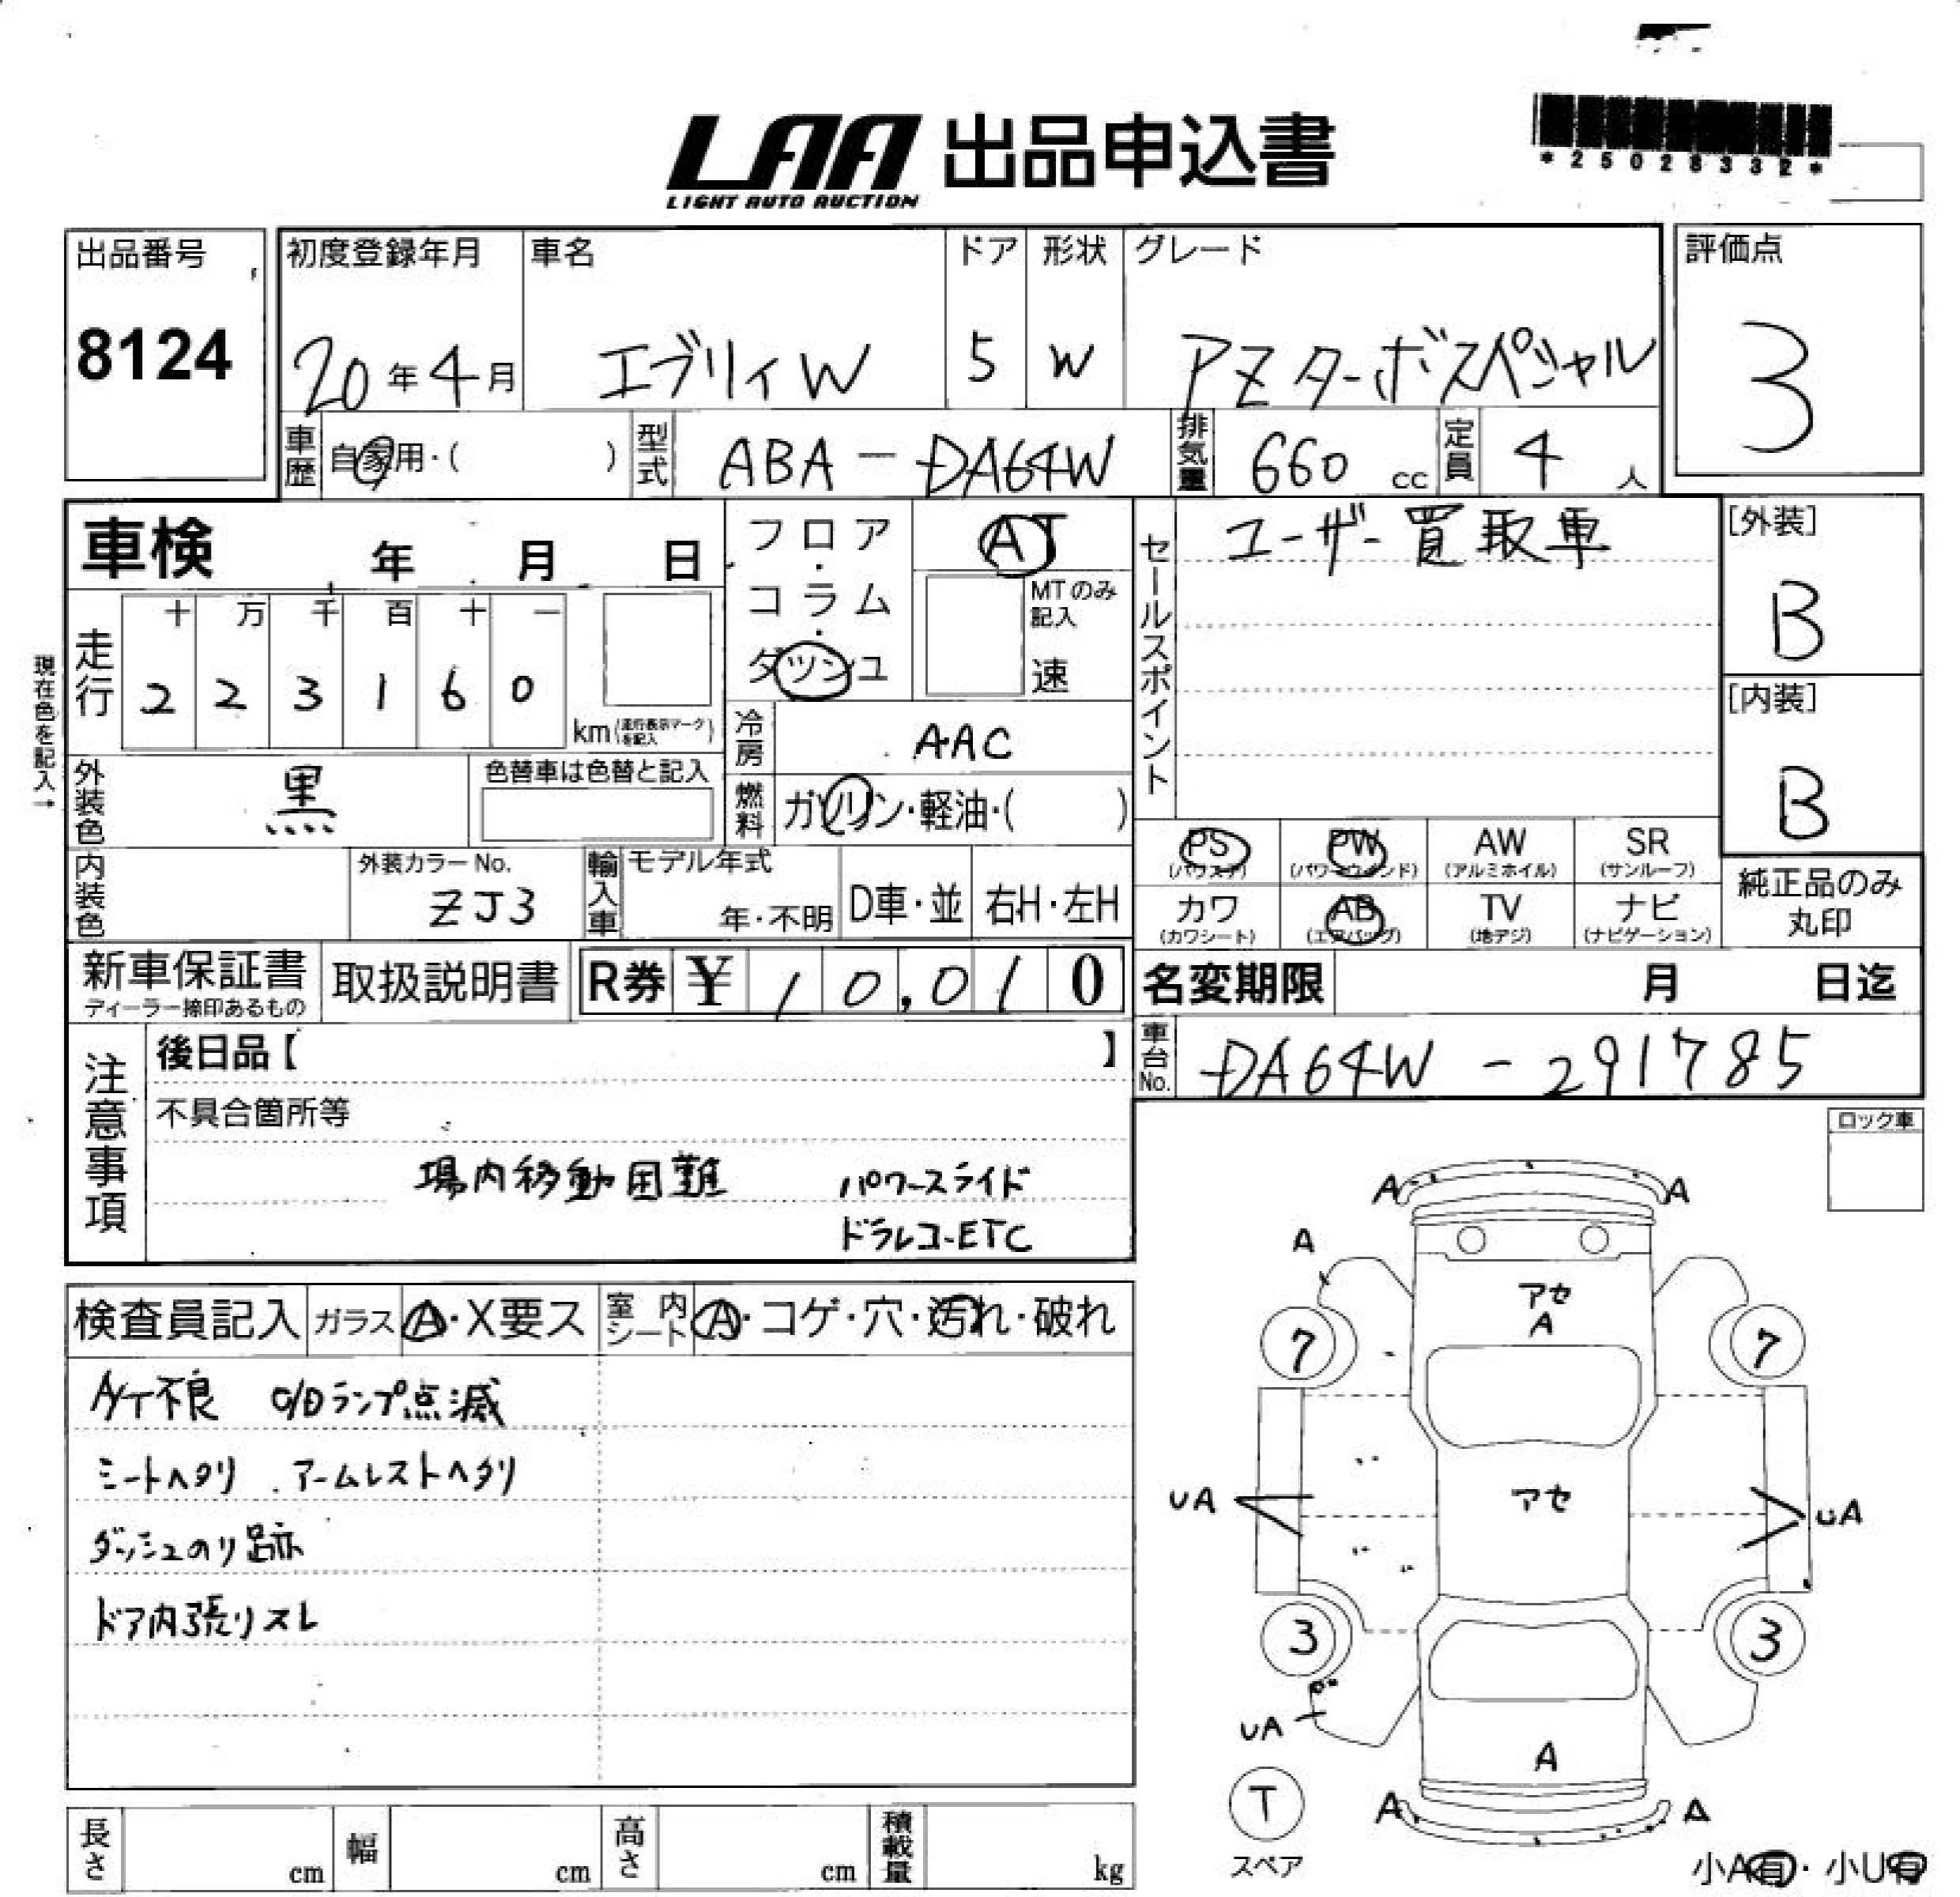 LAA 出品申込書
LIGHT AUTO AUCTION
*25028332*
出品番号
8124
初度登録年月
20年4月
車名
エブリィW
ドア
5
形状
W
グレード
PZターボスペシャル
評価点
3
車歴
自家用・( )
型式
ABA-DA64W
排気量
660 cc
定員
4 人
車検 年 月 日
フロア・コラム・ダッシュ
AT
MTのみ記入
速
セールスポイント
ユーザー買取車
[外装]
B
[内装]
B
現在色を記入→
走行
十 万 千 百 十 一
2 2 3 1 6 0
km(走行表示マークを記入)
冷房
AAC
外装色
黒
色替車は色替と記入
燃料
ガソリン・軽油・( )
内装色
外装カラーNo.
ZJ3
輸入車
モデル年式
年・不明
D車・並
右H・左H
PS
(パワステ)
PW
(パワーウインド)
AW
(アルミホイル)
SR
(サンルーフ)
カワ
(カワシート)
AB
(エアバッグ)
TV
(地デジ)
ナビ
(ナビゲーション)
純正品のみ
丸印
新車保証書
ディーラー捺印あるもの
取扱説明書
R券 ¥10,010
名変期限 月 日迄
車台No.
DA64W-291785
注意事項
後日品【 】
不具合箇所等
場内移動困難 パワースライド
ドラレコ・ETC
ロック車
検査員記入
ガラス A・X要ス
室内シート A・コゲ・穴・汚れ・破れ
A/T不良 O/Dランプ点滅
シートヘタリ アームレストヘタリ
ダッシュのり跡
ドア内張りスレ
A A
A
アセ
A
7 7
アセ
UA UA
3 3
UA
A
T
スペア
A A
小A有・小U有
長さ cm
幅 cm
高さ cm
積載量 kg